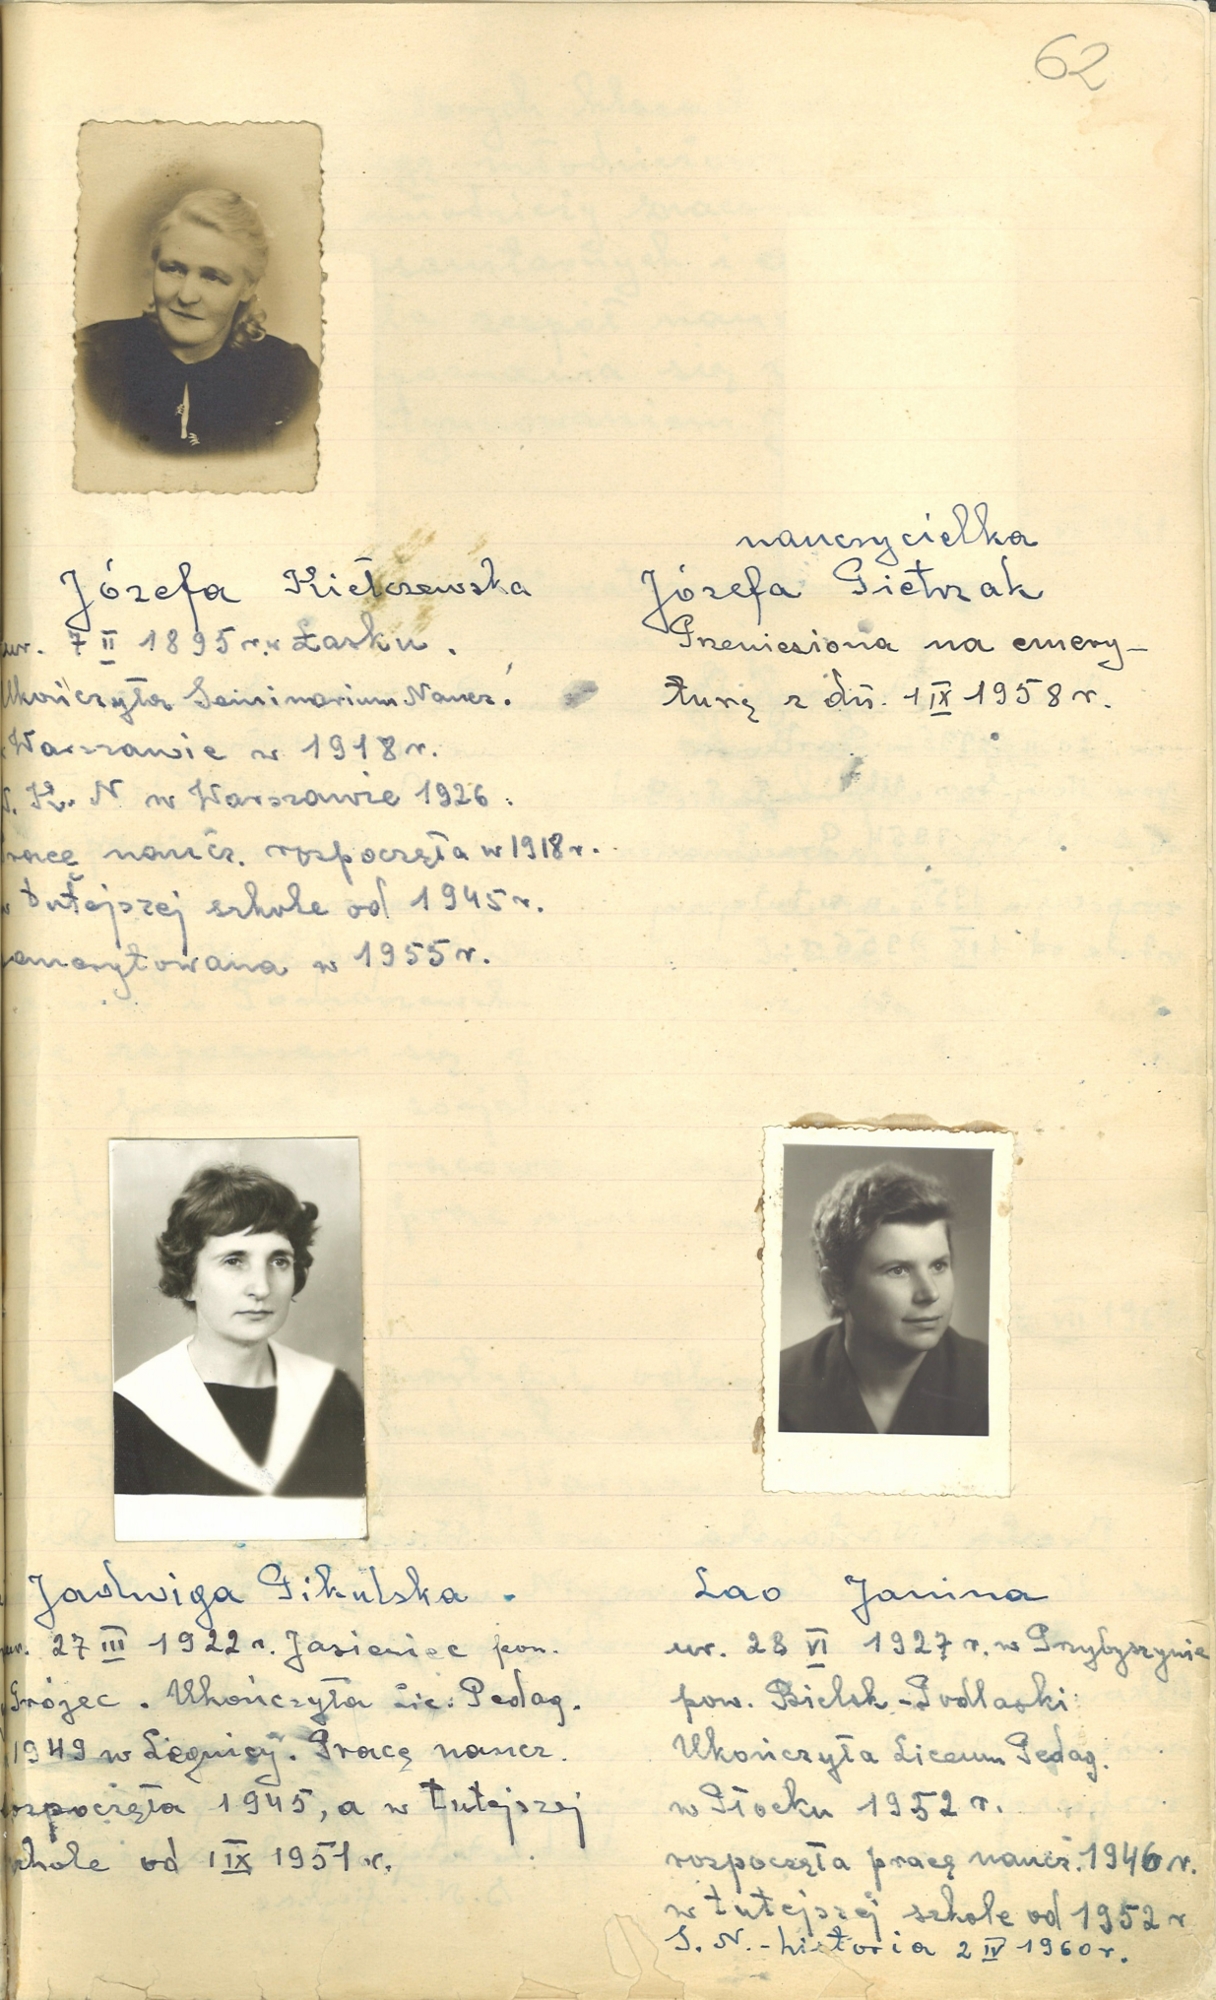 62
Józefa Kiełczewska
ur. 7 II 1895 r. w Łasku.
Ukończyła Seminarium Naucz.
Warszawie w 1918 r.
W. K. N w Warszawie 1926.
racę naucz. rozpoczęła w 1918 r.
w tutejszej szkole od 1945 r.
emerytowana w 1955 r.
nauczycielka
Józefa Pietrzak
Przeniesiona na emery-
turę z dn. 1 IX 1958 r.
Jadwiga Pikulska
ur. 27 III 1922 r. Jasieniec pow.
Grójec. Ukończyła Lic. Pedag.
1949 w Legnicy. Pracę naucz.
ozpoczęła 1945, a w tutejszej
zkole od 1 IX 1951 r.
Lao Janina
ur. 28 VI 1927 r. w Przybyszynie
pow. Bielsk-Podlaski
Ukończyła Liceum Pedag.
w Płocku 1952 r.
rozpoczęła pracę naucz. 1946 r.
w tutejszej szkole od 1952 r
S. N. - historia 2 IV 1960 r.